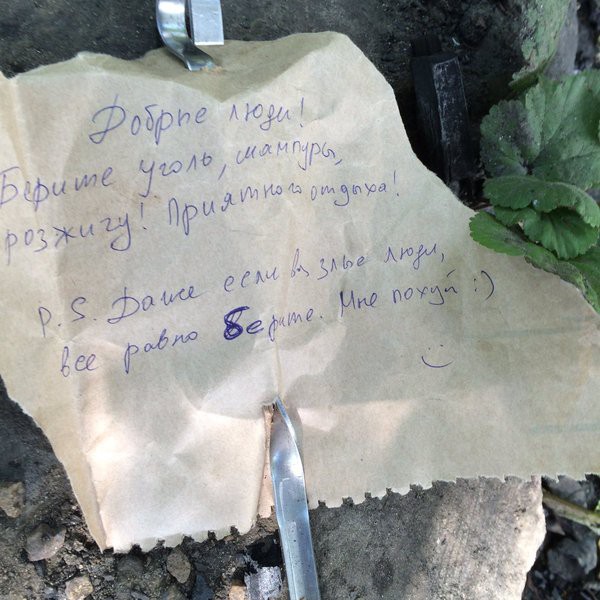 Добрые люди!
Берите уголь, шампуры,
розжигу! Приятного отдыха!
P.S. Даже если вы злые люди,
все равно берите. Мне похуй :)